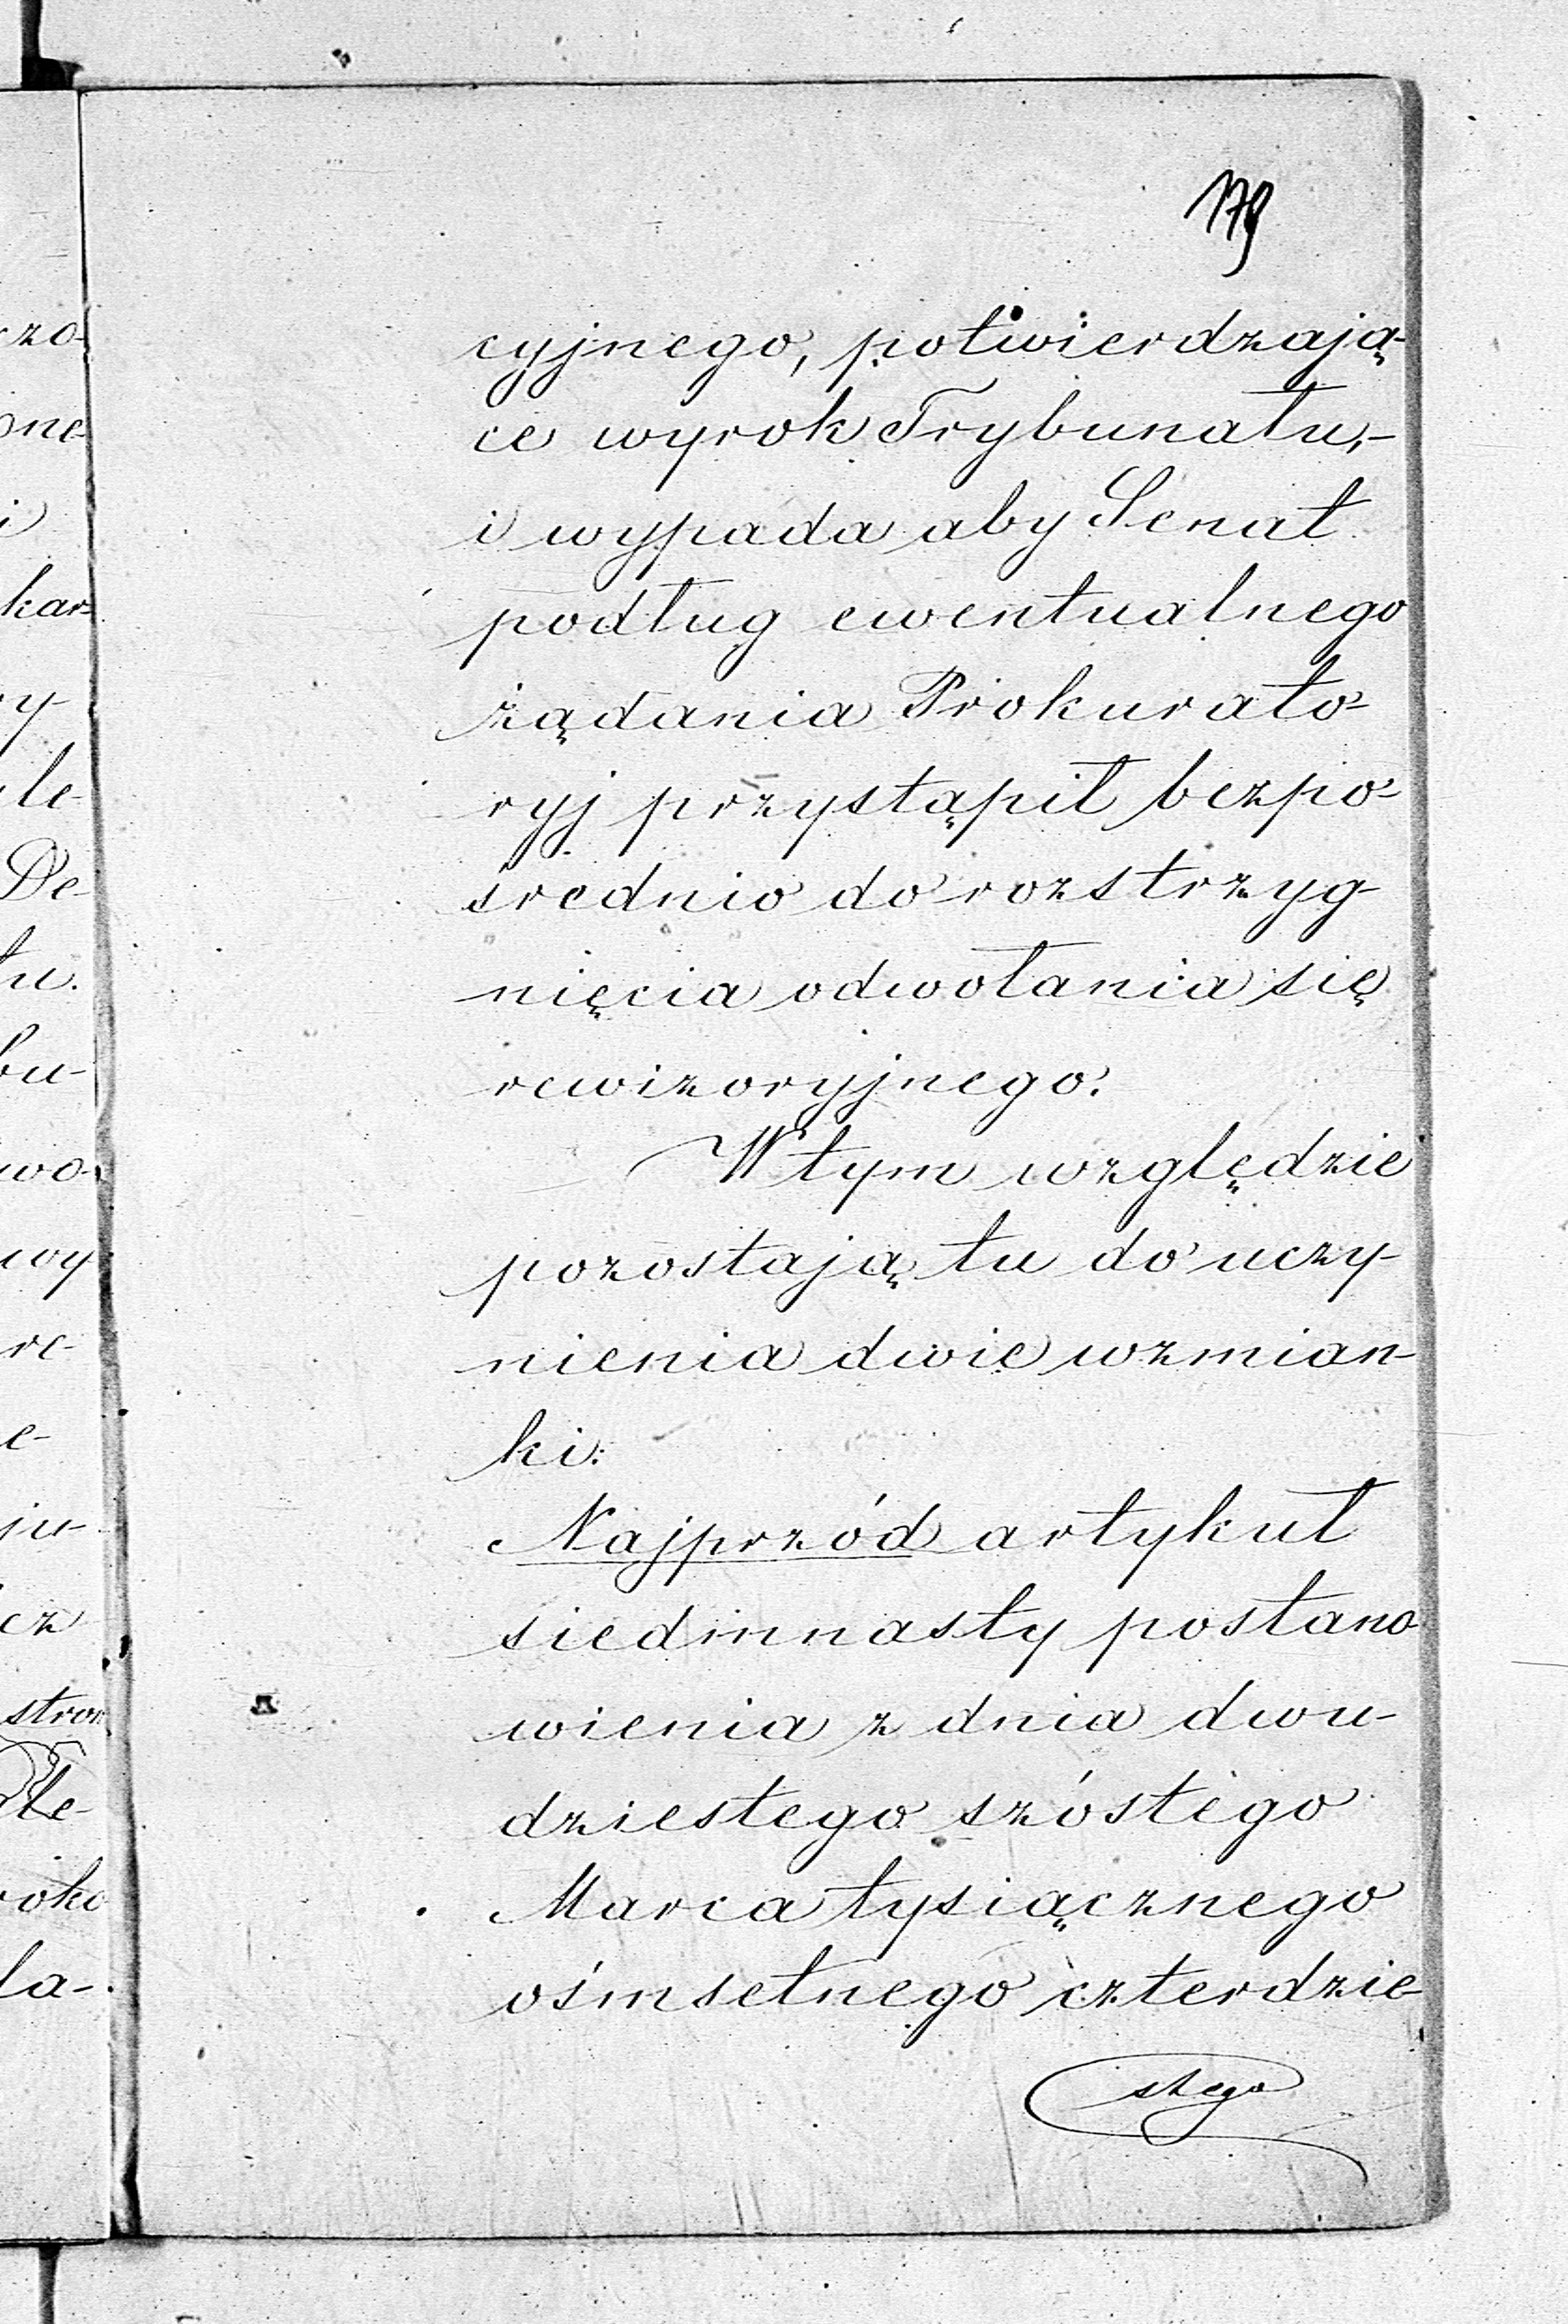 179
cyjnego, potwierdzają-
ce wyrok Trybunału,-
i wypada aby Senat
podług ewentualnego
żądania Prokurato-
ryj przystąpił bezpo-
średnio do rozstrzyg-
nięcia odwołania się
rewizoryjnego.
W tym względzie
pozostają tu do uczy-
nienia dwie wzmian-
ki:
Najprzód artykuł
siedmnasty postano-
wienia z dnia dwu-
dziestego szóstego
Marca tysiącznego
ośmsetnego czterdzie-
stego